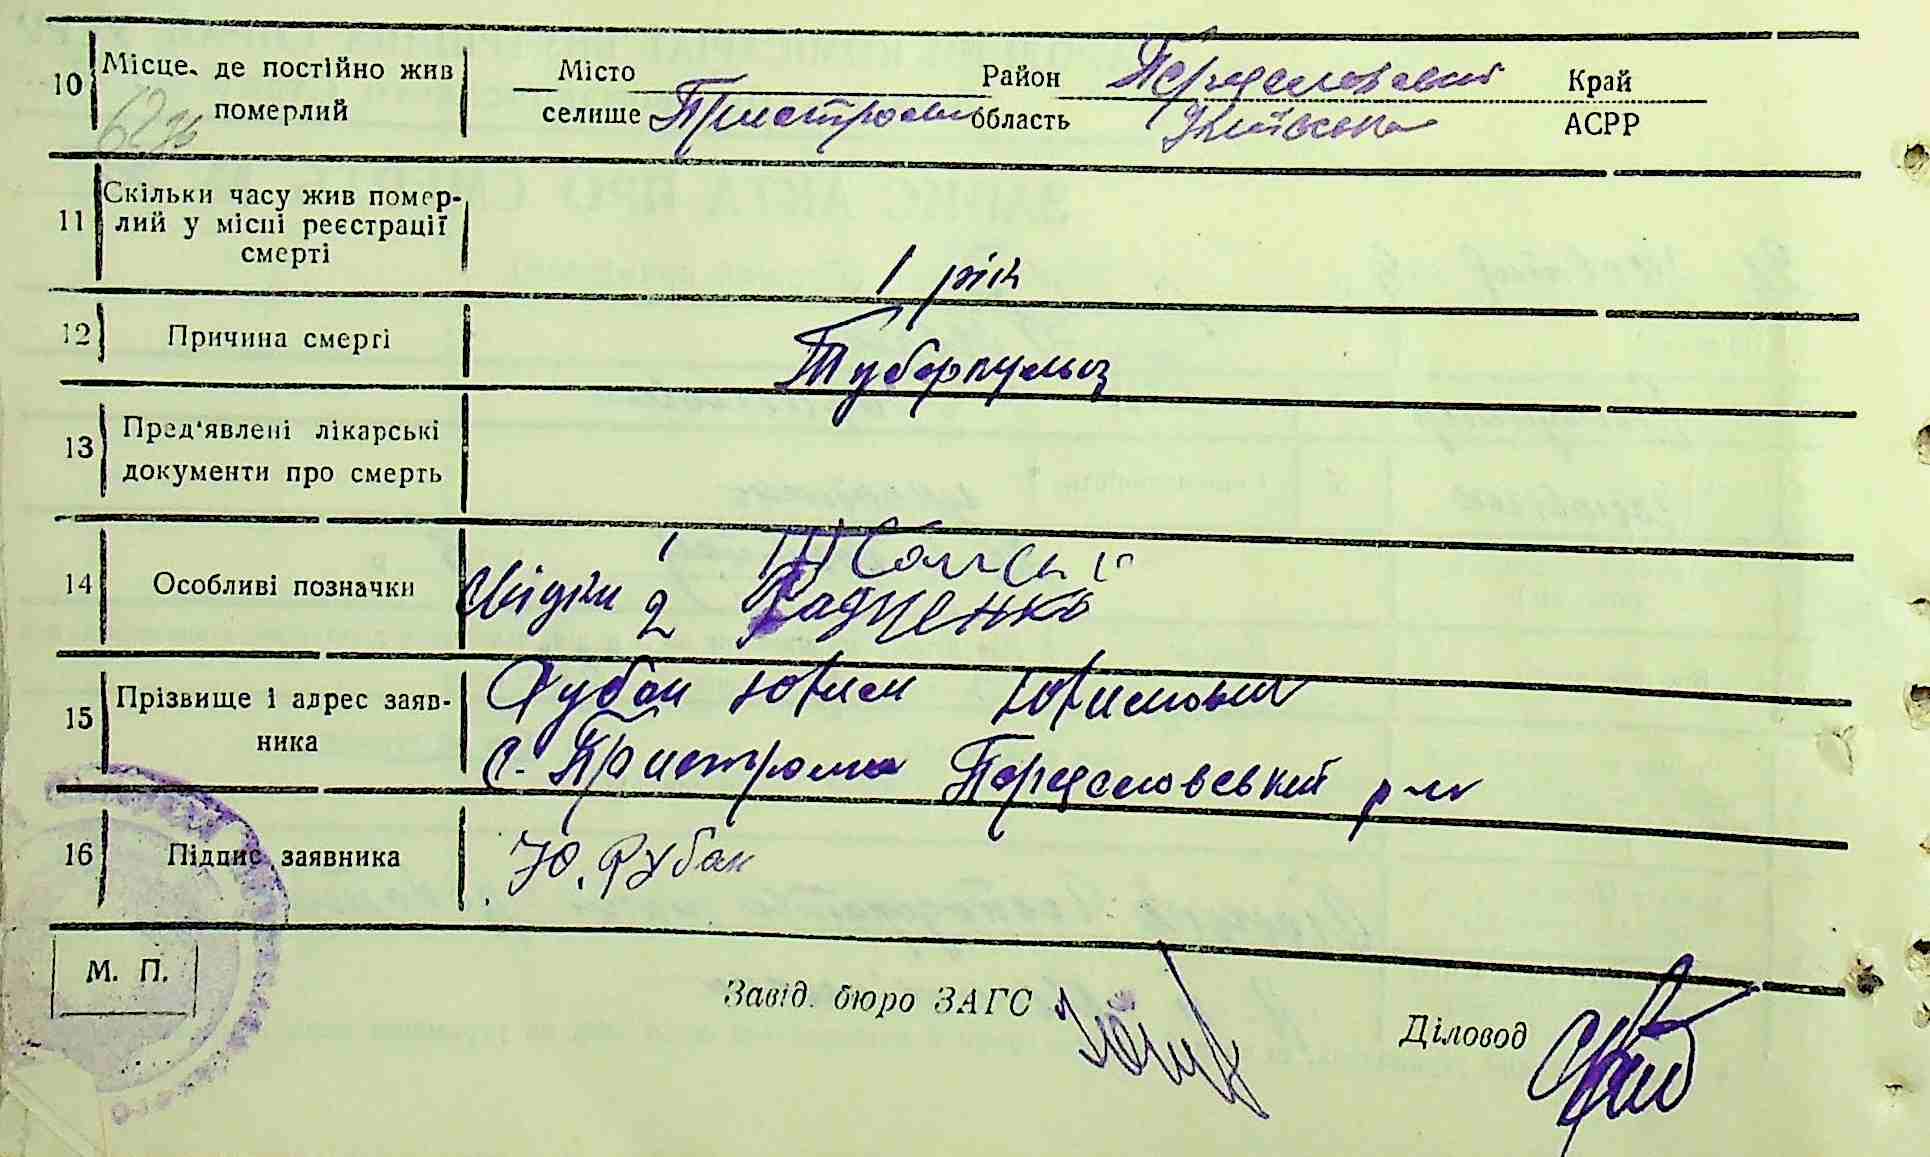 10 Місце, де постійно жив померлий
Місто
селище Пристроми
Район Переяславський
область Київська
Край
АСРР
11 Скільки часу жив помер-
лий у місці реєстрації
смерті
1 рік
12 Причина смерті
Туберкульоз
13 Пред'явлені лікарські
документи про смерть
14 Особливі позначки
свідки
1
2 Радченко
15 Прізвище і адрес заяв-
ника
Рубан Юхим Юхимович
с. Пристроми Переяславський р-н
16 Підпис заявника
Ю. Рубан
М. П.
Завід. бюро ЗАГС
Діловод